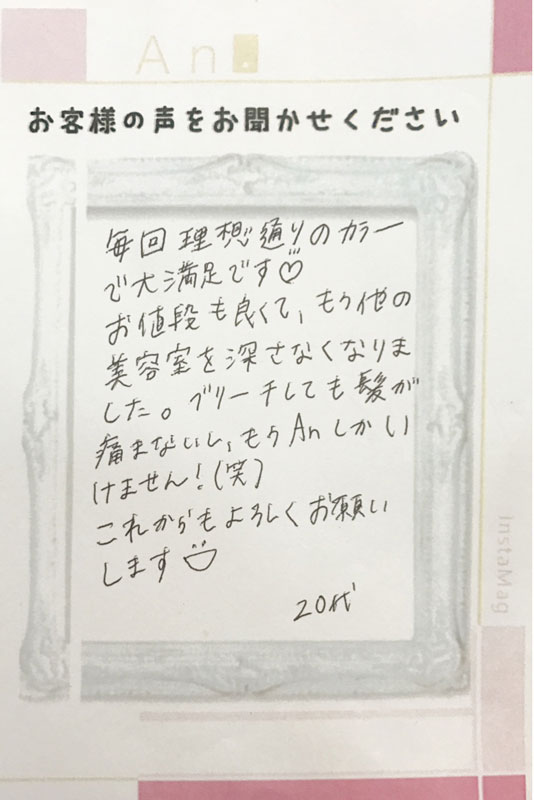 An
お客様の声をお聞かせください
毎回理想通りのカラー
で大満足です♡
お値段も良くて、もう他の
美容室を深さなくなりま
した。ブリーチしても髪が
痛まないし、もうAnしかい
けません！(笑)
これからもよろしくお願い
します
20代
InstaMag